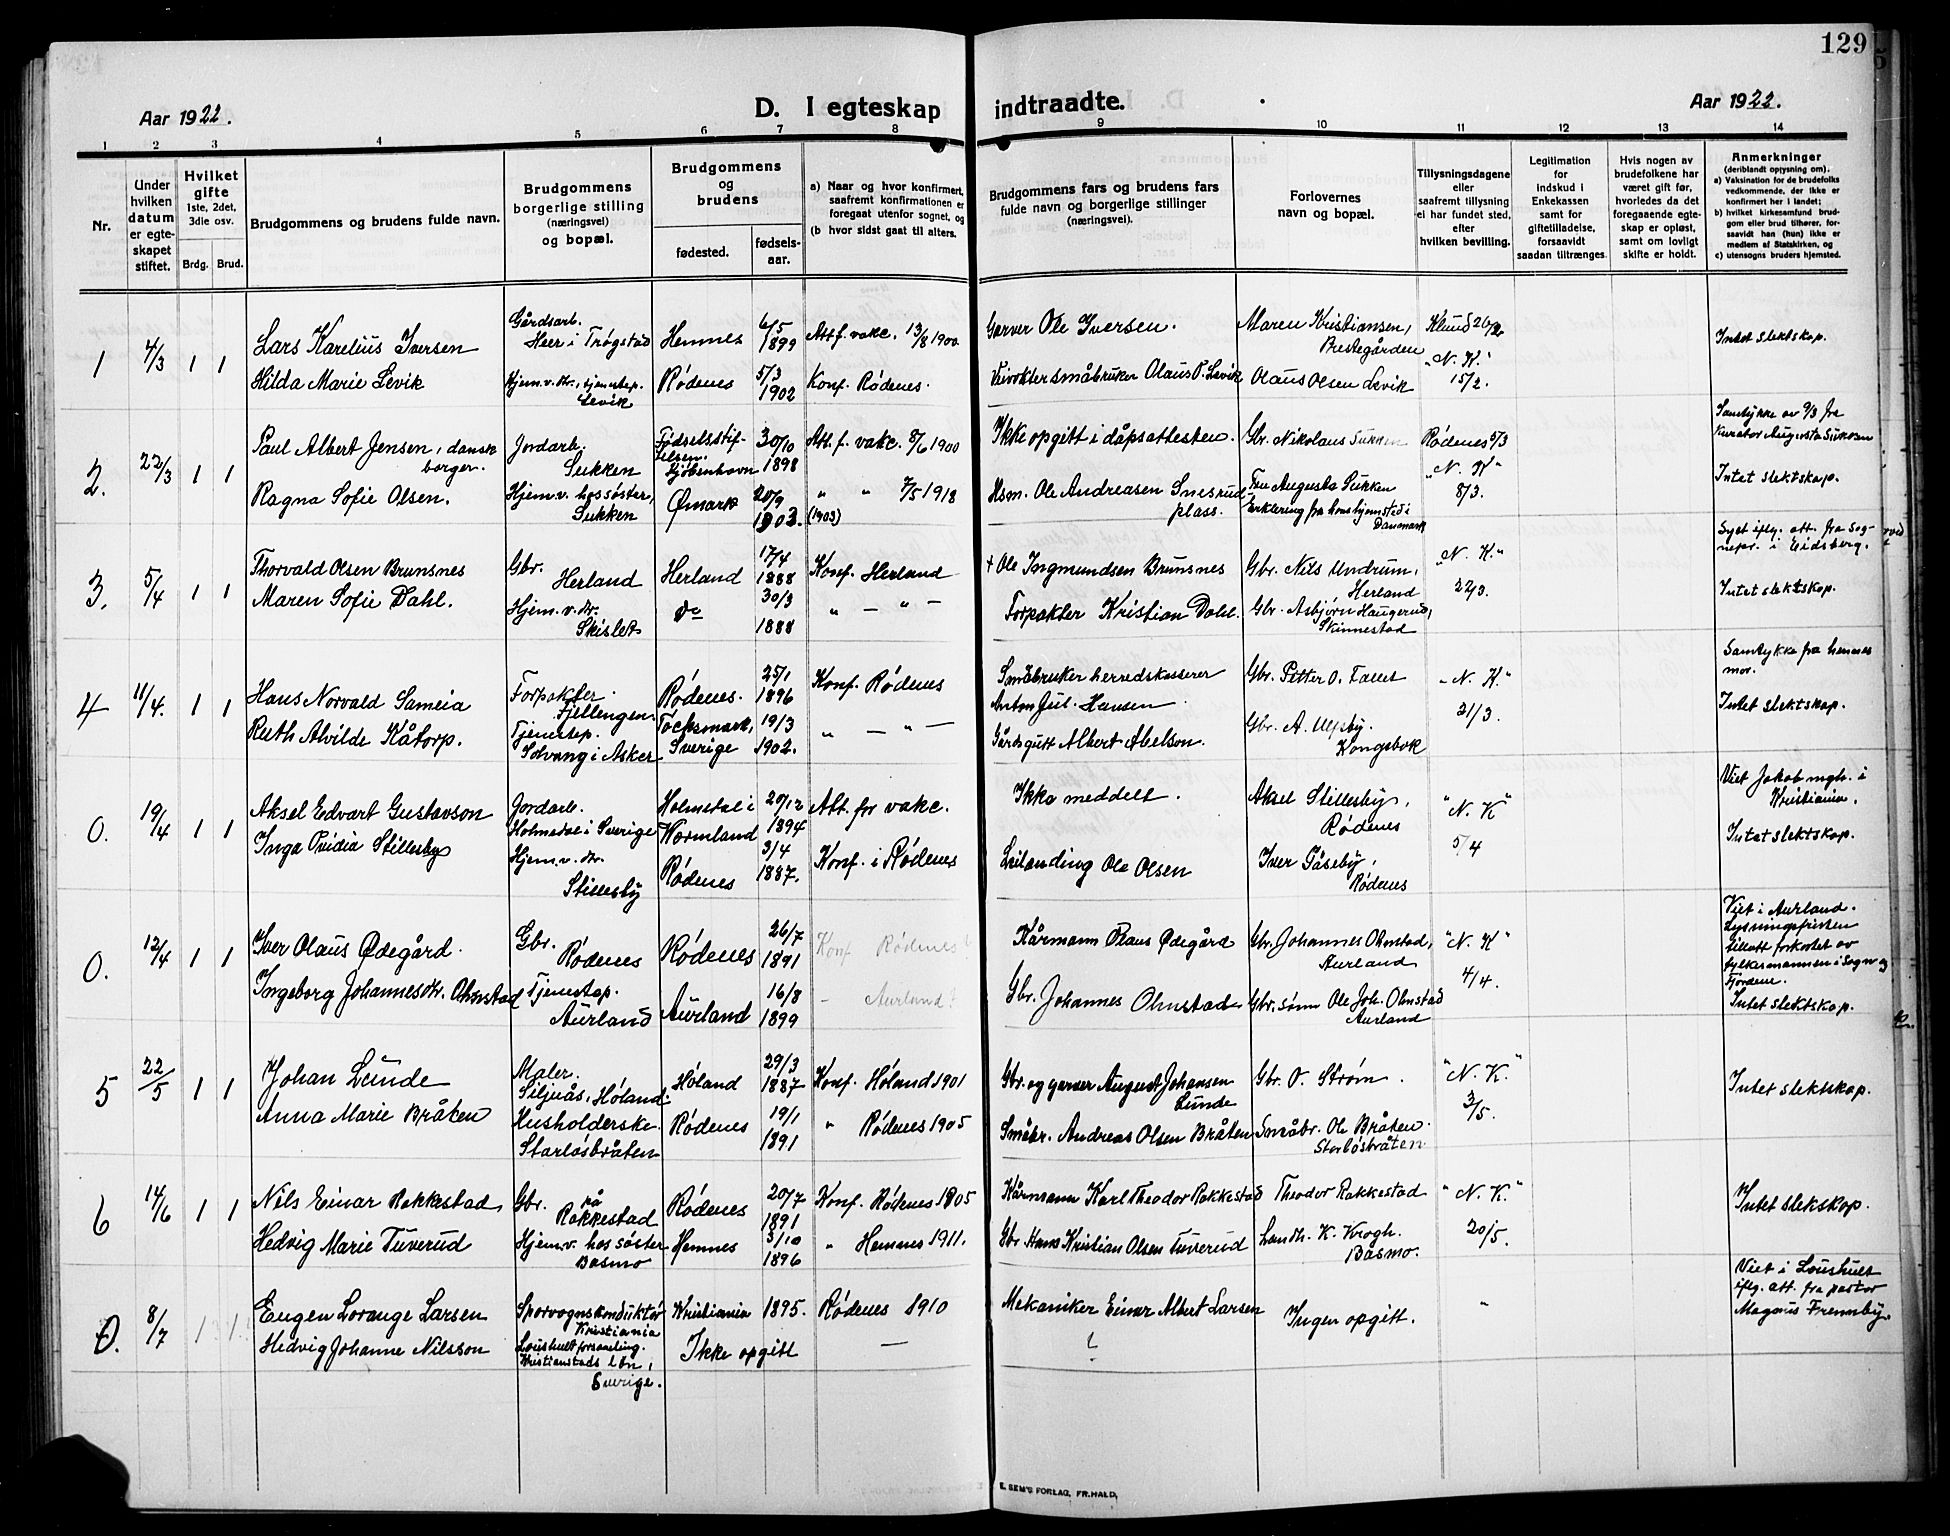 129
Aar 1922.
D. I egteskap indtraadte.
Aar 1922.
1 2 3 4 5 6 7 8 9 10 11 12 13 14
Nr.
Under hvilken datum er egteskapet stiftet.
Hvilket gifte 1ste, 2det, 3die osv.
Brdg. Brud.
Brudgommens og brudens fulde navn.
Brudgommens borgerlige stilling (næringsvei) og bopæl.
Brudgommens og brudens
fødested. fødselsaar.
a) Naar og hvor konfirmert, saafremt konfirmationen er foregaat utenfor sognet, og
(b hvor sidst gaat til alters.
Brudgommens fars og brudens fars fulde navn og borgerlige stillinger (næringsvei).
Forlovernes navn og bopæl.
Tillysningsdagene eller saafremt tillysning ei har fundet sted, efter hvilken bevilling.
Legitimation for indskud i Enkekassen samt for giftetilladelse, forsaavidt saadan tiltrænges.
Hvis nogen av brudefolkene har været gift før, hvorledes da det foregaaende egteskap er opløst, samt om lovligt skifte er holdt.
Anmerkninger (deriblandt opjysning om).
a) Vaksination for de brudefolks vedkommende, der ikke er konfirmert her i landet;
b) hvilket kirkesamfund brudgom eller brud tilhører, forsaavidt han (hun) ikke er medlem af Statskirken, og
c) utensogns bruders hjemsted.
1 4/3 1 1
Lars Karelius Iversen
Gårdsarb. Heer i Trøgstad
Hemnes 6/5 1899
Att f. vakc. 13/8 1900
Garver Ole Iversen.
Maren Kristiansen, Brestegården
Intet slektskap.
Hilda Marie Levik
Hjem.v. Levik
Rødenes 5/3 1902
Konf. Rødenes.
småbruker Olaus P. Levik
Olaus Olsen Levik
"N. K." 15/2.
2. 22/3 1 1
Paul Albert Jensen, dansk borger.
Jordarb. Sukken
Fødselsstiftelsen. Kjøbenhavn 30/10 1898
Att. f. vakc. 8/6 1900
Ikke opgitt i dåpsattesten.
Gbr. Nikolaus Sukken
Rødenes 5/3
Samtykke av 9/3 fra Kurator Augusta Sukken
Ragna Sofie Olsen.
Hjem.v. hos søster, Sukken
Ømark 20/9 1903.
" " 7/5 1918 (1903)
Hsm. Ole Andreasen Snesrud plass.
Fru Augusta Sukken
Erklering fra hans hjemsted i Danmark
"N. K" 8/3.
Intet slektskap.
3. 5/4 1 1
Thorvald Olsen Brunsnes
Gbr. Herland
Herland 17/4 1888
Konf. Herland
+ Ole Ingmundsen Brunsnes
Gbr. Nils Undrum, Herland
"N. K." 22/3.
iflg. att. fra sognepr. i Eidsberg.
Maren Sofie Dahl.
Hjem.v. Skislet
do 30/3 1888
" — " —
Forpakter Kristian Dahl.
Gbr. Asbjørn Haugerud, Skinnestad
Intet slektskap.
4 11/4. 1 1
Hans Norvald Sameia
Forpakter. Fjellengen.
Rødenes. 25/1 1896
Konf. Rødenes
Småbruker herredskasserer Anton Jul. Hansen
Gbr. Petter O.
"N. K." 21/3.
Samtykke fra hennes mor.
Ruth Alvilde Kåtorp.
Tjenestep. Solvang i Asker
Töcksmark, Sverige 19/3 1902.
" — " —
Gårdsgutt Albert Abelson.
Gbr. A. Ulfsby. Kongsbok
Intet slektskap.
0. 19/4 1 1
Aksel Edvart Gustavson
Jordarb. Holmedal i Sverige
Holmedal i Wærmland 20/12 1894
Att. for vakc.
Ikke meddelt.
Aksel Stillesby, Rødenes
"N. K" 5/4
Viet Jakob mgh. i Kristiania.
Inga Ovidia Stillesby
Hjem.v. Stillesby
Rødenes 3/4 1887.
Konf. i Rødenes
Leilanding Ole Olsen
Iver Gåseby, Rødenes
Intet slektskap.
0. 12/4 1 1
Iver Olaus Ødegård.
Gbr. Rødenes
Rødenes 26/7 1891
Konf Rødenes?
Kårmann Olaus Ødegård
Gbr. Johannes Ohnstad, Aurland
"N. K" 4/4.
Viet i Aurland. Lysningsfristen tillatt forkortet av fylkesmannen i Sogn og Fjordene.
Ingeborg Johannesdtr. Ohnstad
Tjenestep. Aurland
Aurland 16/8 1899
- Aurland?
Gbr. Johannes Ohnstad
Gbr. sønn Ole Joh. Ohnstad Aurland
Intet slektskap.
5 22/5 1 1
Johan Lunde
Maler. Siljuås, Høland.
Høland 29/3 1887
Konf. Høland 1901
Gbr. og garver August Johansen Lunde
Gbr. O. Strøm.
"N. K." 3/5.
Intet slektskap.
Anna Marie Bråten
Husholderske. Storløsbråten
Rødenes 19/1 1891
" Rødenes 1905
Småbr. Andreas Olsen Bråten
Småbr. Ole Bråten. Storløsbråten
6 14/6 1 1
Nils Einar Rakkestad,
Gbr. på Rakkestad
Rødenes 20/7 1891
Konf. Rødenes 1905
Kårmann Karl Theodor Rakkestad
Theodor Rakkestad
"N. K." 20/5.
Intet slekskap.
Hedvig Marie Tuverud
Hjem.v. hos søster Basmo
Hemnes 3/10 1896
" Hemnes 1911.
Gbr Hans Kristian Olsen Tuverud
Landh. K. Krogh. Båsmo.
0. 8/7 1 1
Eugen Lorange Larsen
Sporvognskonduktør Kristiania
Kristiania 1895.
Rødenes 1910
Mekaniker Einar Albert Larsen
Ingen opgitt.
"
Viet i Loushult iflg. att. fra pastor Magnus Frennby.
Hedvig Johanne Nilsson
Loushult forsamling. Kristianstads len, Sverige.
Ikke opgitt
—
?
E. SEM'S FORLAG, FR.HALD,